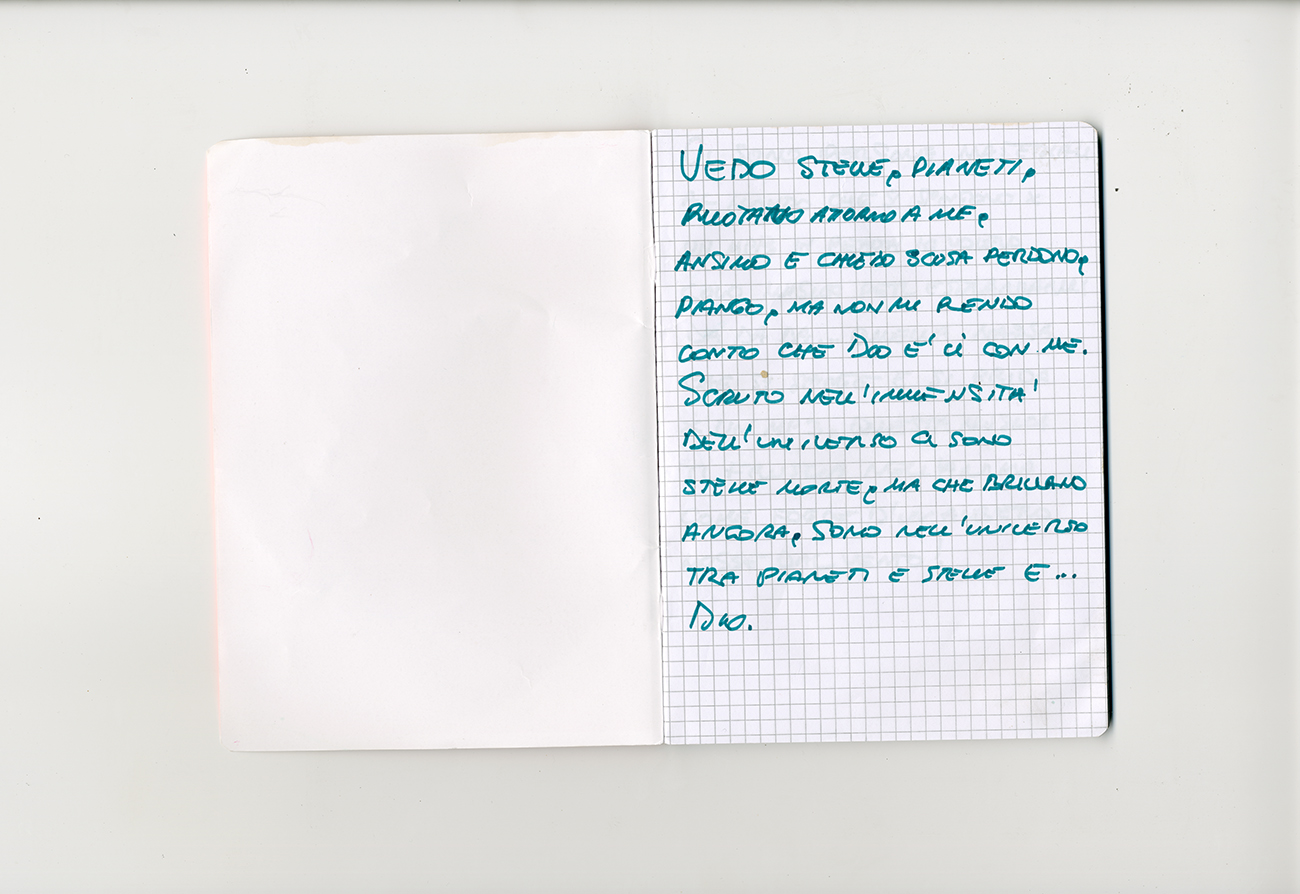 VEDO STELLE, PIANETI,
RUOTANO ATTORNO A ME,
ANSIMO E CHIEDO SCUSA PERDONO,
PIANGO, MA NON MI RENDO
CONTO CHE DIO E' LÌ CON ME.
SCRUTO NELL'IMMENSITA'
DELL'UNIVERSO CI SONO
STELLE MORTE, MA CHE BRILLANO
ANCORA, SONO NELL'UNIVERSO
TRA PIANETI E STELLE E...
DIO.